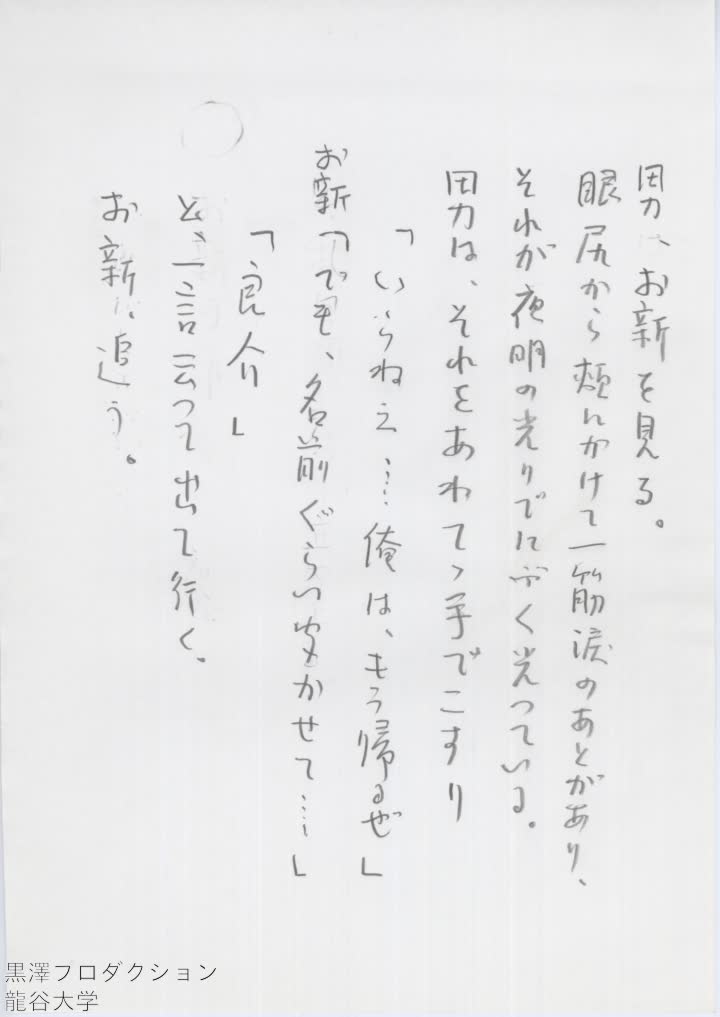 男、お新を見る。
眼尻から頬にかけて一筋涙のあとがあり、
それが夜明の光りでにぶく光っている。
男は、それをあわてゝ手でこすり
「いらねえ……俺は、もう帰るぜ」
お新「でも、名前ぐらい聞かせて……」
「良介」
と、一言云って出て行く。
お新、追う。
黒澤プロダクション
龍谷大学